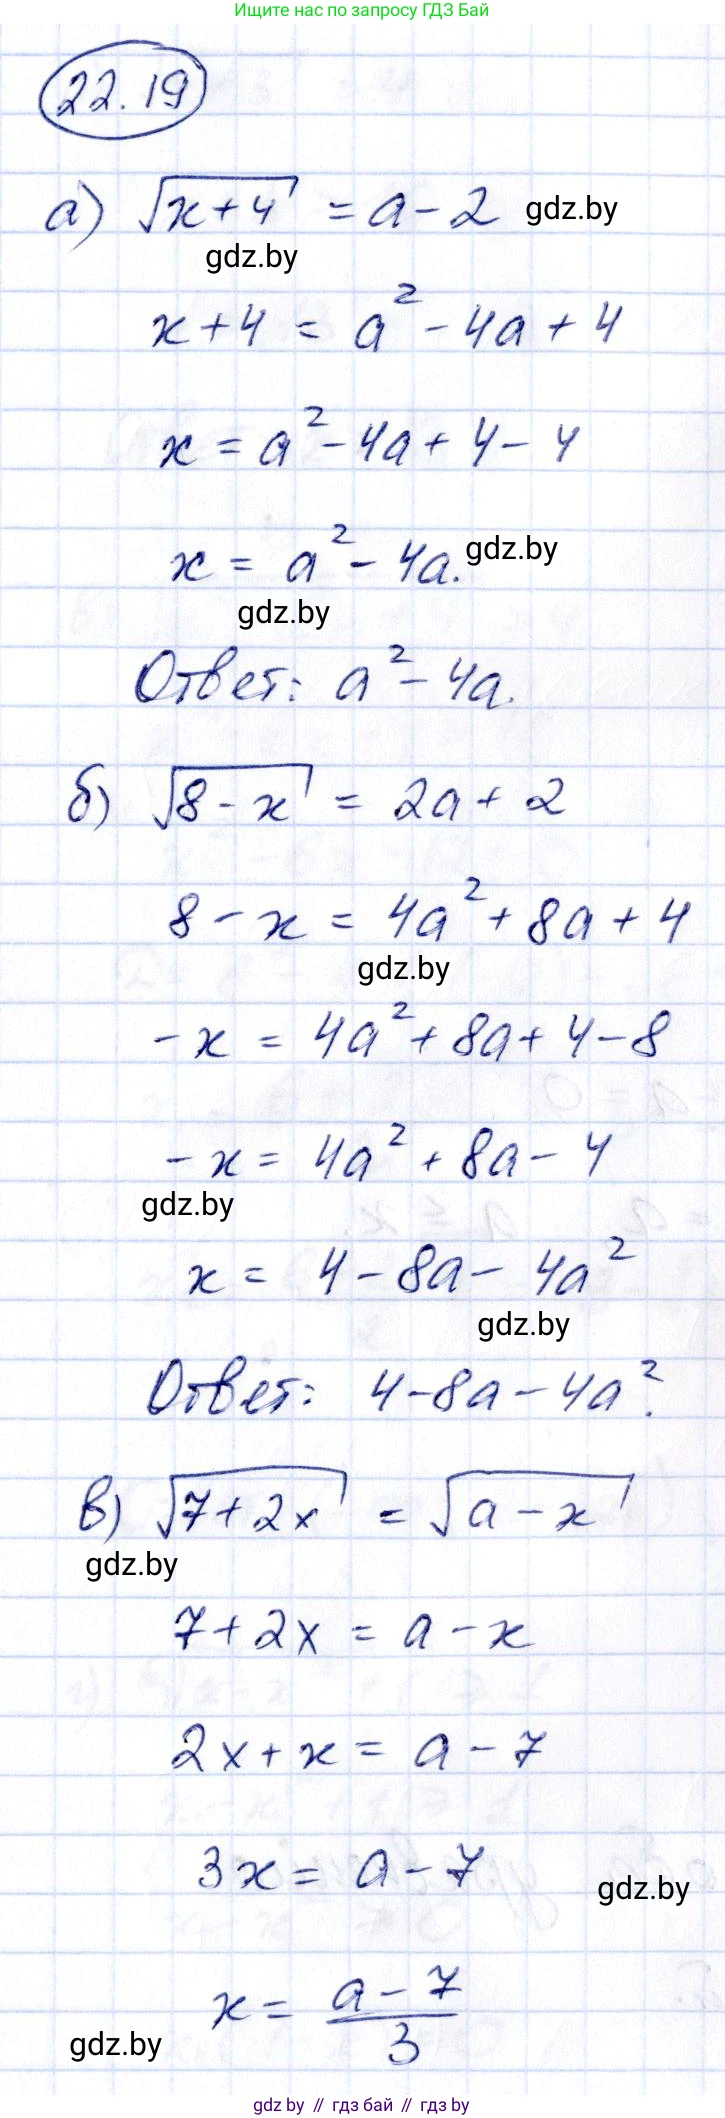 Ищите нас по запросу ГДЗ Бай
22.19
а) √(x+4) = a-2 gdz.by
gdz.by
x+4 = a²-4a+4
x = a²-4a+4-4
x = a²-4a. gdz.by
gdz.by
Ответ: a²-4a.
б) √(8-x) = 2a+2
8-x = 4a²+8a+4
gdz.by
-x = 4a²+8a+4-8
-x = 4a²+8a-4
gdz.by
x = 4-8a-4a²
gdz.by
Ответ: 4-8a-4a².
в) √(7+2x) = √(a-x)
gdz.by
7+2x = a-x
2x+x = a-7
3x = a-7
gdz.by
x = (a-7)/3
gdz.by
gdz.by // гдз бай // гдз by